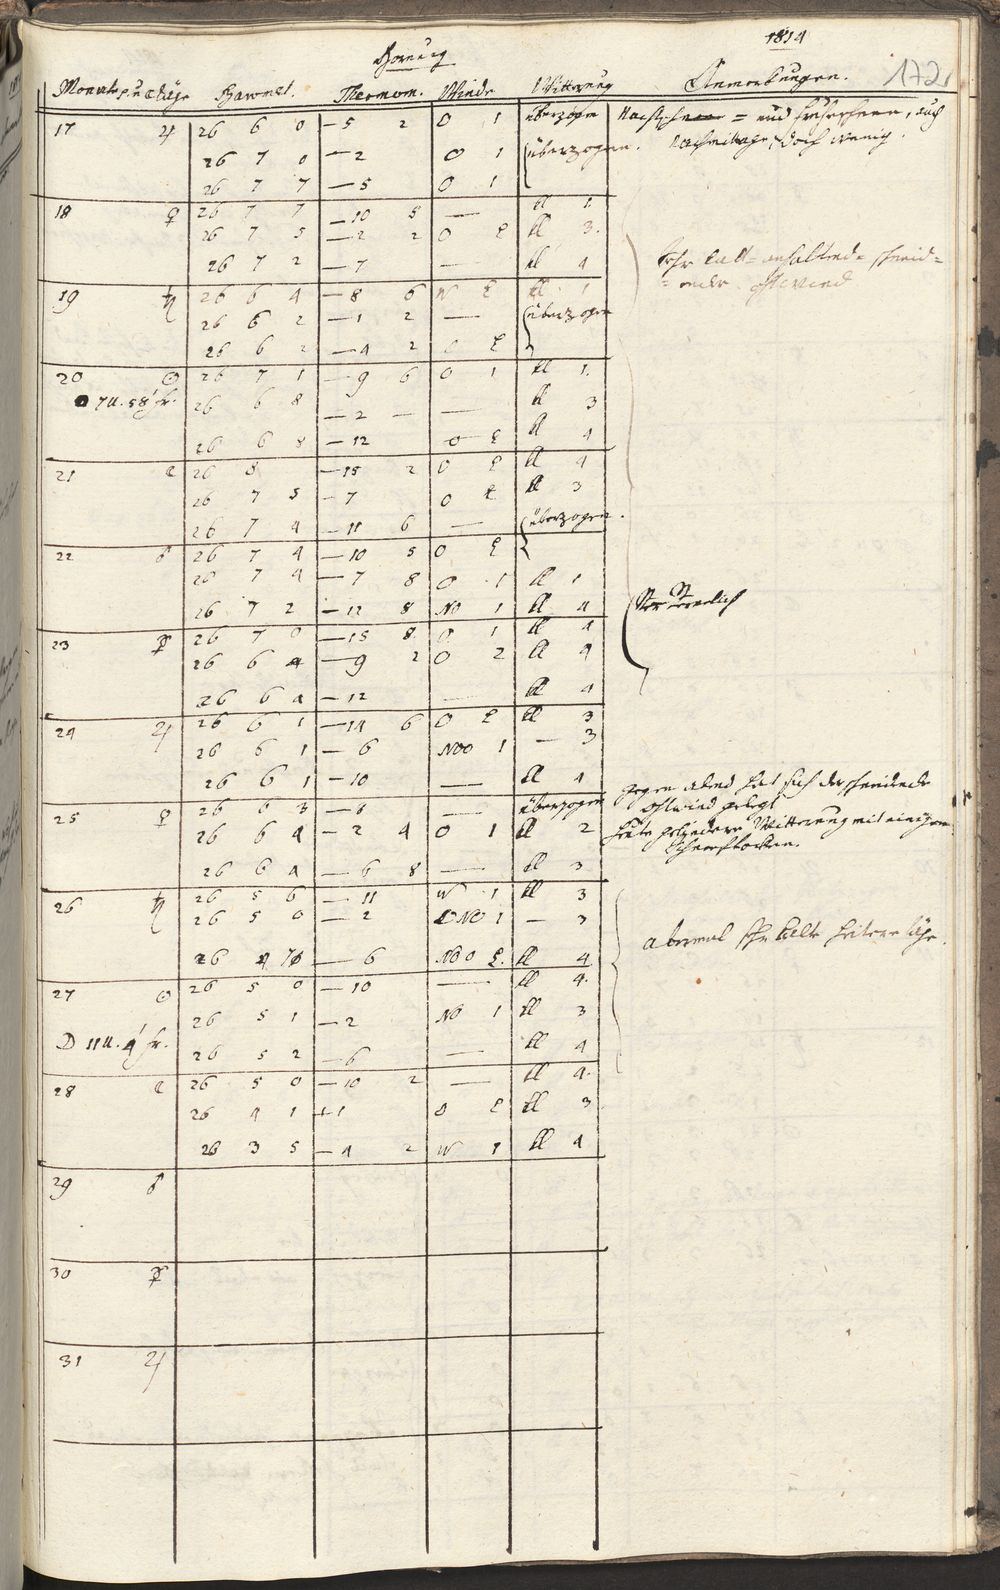 1814
Hornung
172
Monats p. u. Täge Baromet. Thermom. Winde Witterung Anmerkungen.
17 ♃ 26 6 0 — 5 2 O 1 überzogen Nachtschnee = und frühe schnee, auch
26 7 0 — 2 O 1 überzogen. Nachmittags, doch wenig.
26 7 7 — 5 O 1
18 ♀ 26 7 7 — 10 5 — kl 1.
26 7 5 — 2 2 O 2 kl 3.
26 7 2 — 7 — kl 4
Sehr kalt = anhaltend = schneid=
= ender Ostwind
19 ♄ 26 6 4 — 8 6 W 2 kl 1
26 6 2 — 1 2 — überzogen
26 6 2 — 4 2 O 2
20 ☉ 26 7 1 — 9 6 O 1 kl 1.
● 7 U. 58' fr. 26 6 8 — 2 — — kl 3
26 6 8 — 12 O 2 kl 4
21 ☾ 26 8 — 15 2 O 2 kl 4
26 7 5 — 7 O 2 kl 3
26 7 4 — 11 6 — überzogen.
22 ♂ 26 7 4 — 10 5 O 2
26 7 4 — 7 8 O 1 kl 1
26 7 2 — 12 8 NO 1 kl 4
23 ☿ 26 7 0 — 15 8 O 1 kl 4
26 6 4 — 9 2 O 2 kl 4
26 6 4 — 12 — kl 4
24 ♃ 26 6 1 — 14 6 O 2 kl 3
26 6 1 — 6 NOO 1 — 3
26 6 1 — 10 — kl 4
gegen abend hat sich der schneidende
Ostwind gelegt
25 ♀ 26 6 3 — 8 — überzogen
26 6 4 — 2 4 O 1 kl 2
heute gelindere Witterung mit einigen
Schneeflocken.
26 6 4 — 6 8 — kl 3
26 ♄ 26 5 6 — 11 W 1 kl 3
26 5 0 — 2 ONO 1 — 3
26 — 6 NOO 2. kl 4
abermal sehr kalte heitere Täge.
27 ☉ 26 5 0 — 10 — kl 4.
26 5 1 — 2 NO 1 kl 3
☽ 11 U. 4' fr. 26 5 2 — 6 — kl 4
28 ☾ 26 5 0 — 10 2 — kl 4.
26 4 1 + 1 O 2 kl 3
26 3 5 — 4 2 W 1 kl 4
29 ♂
30 ☿
31 ♃